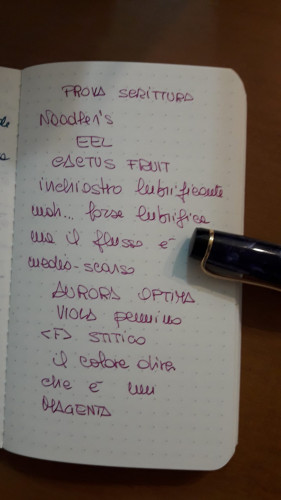 PROVA SCRITTURA
Noodler's
EEL
CACTUS FRUIT
inchiostro lubrificante
mah... forse lubrifica
ma il flusso è
medio-scarso
AURORA OPTIMA
VIOLA pennino
<F> STITICO
il colore direi
che è un
MAGENTA